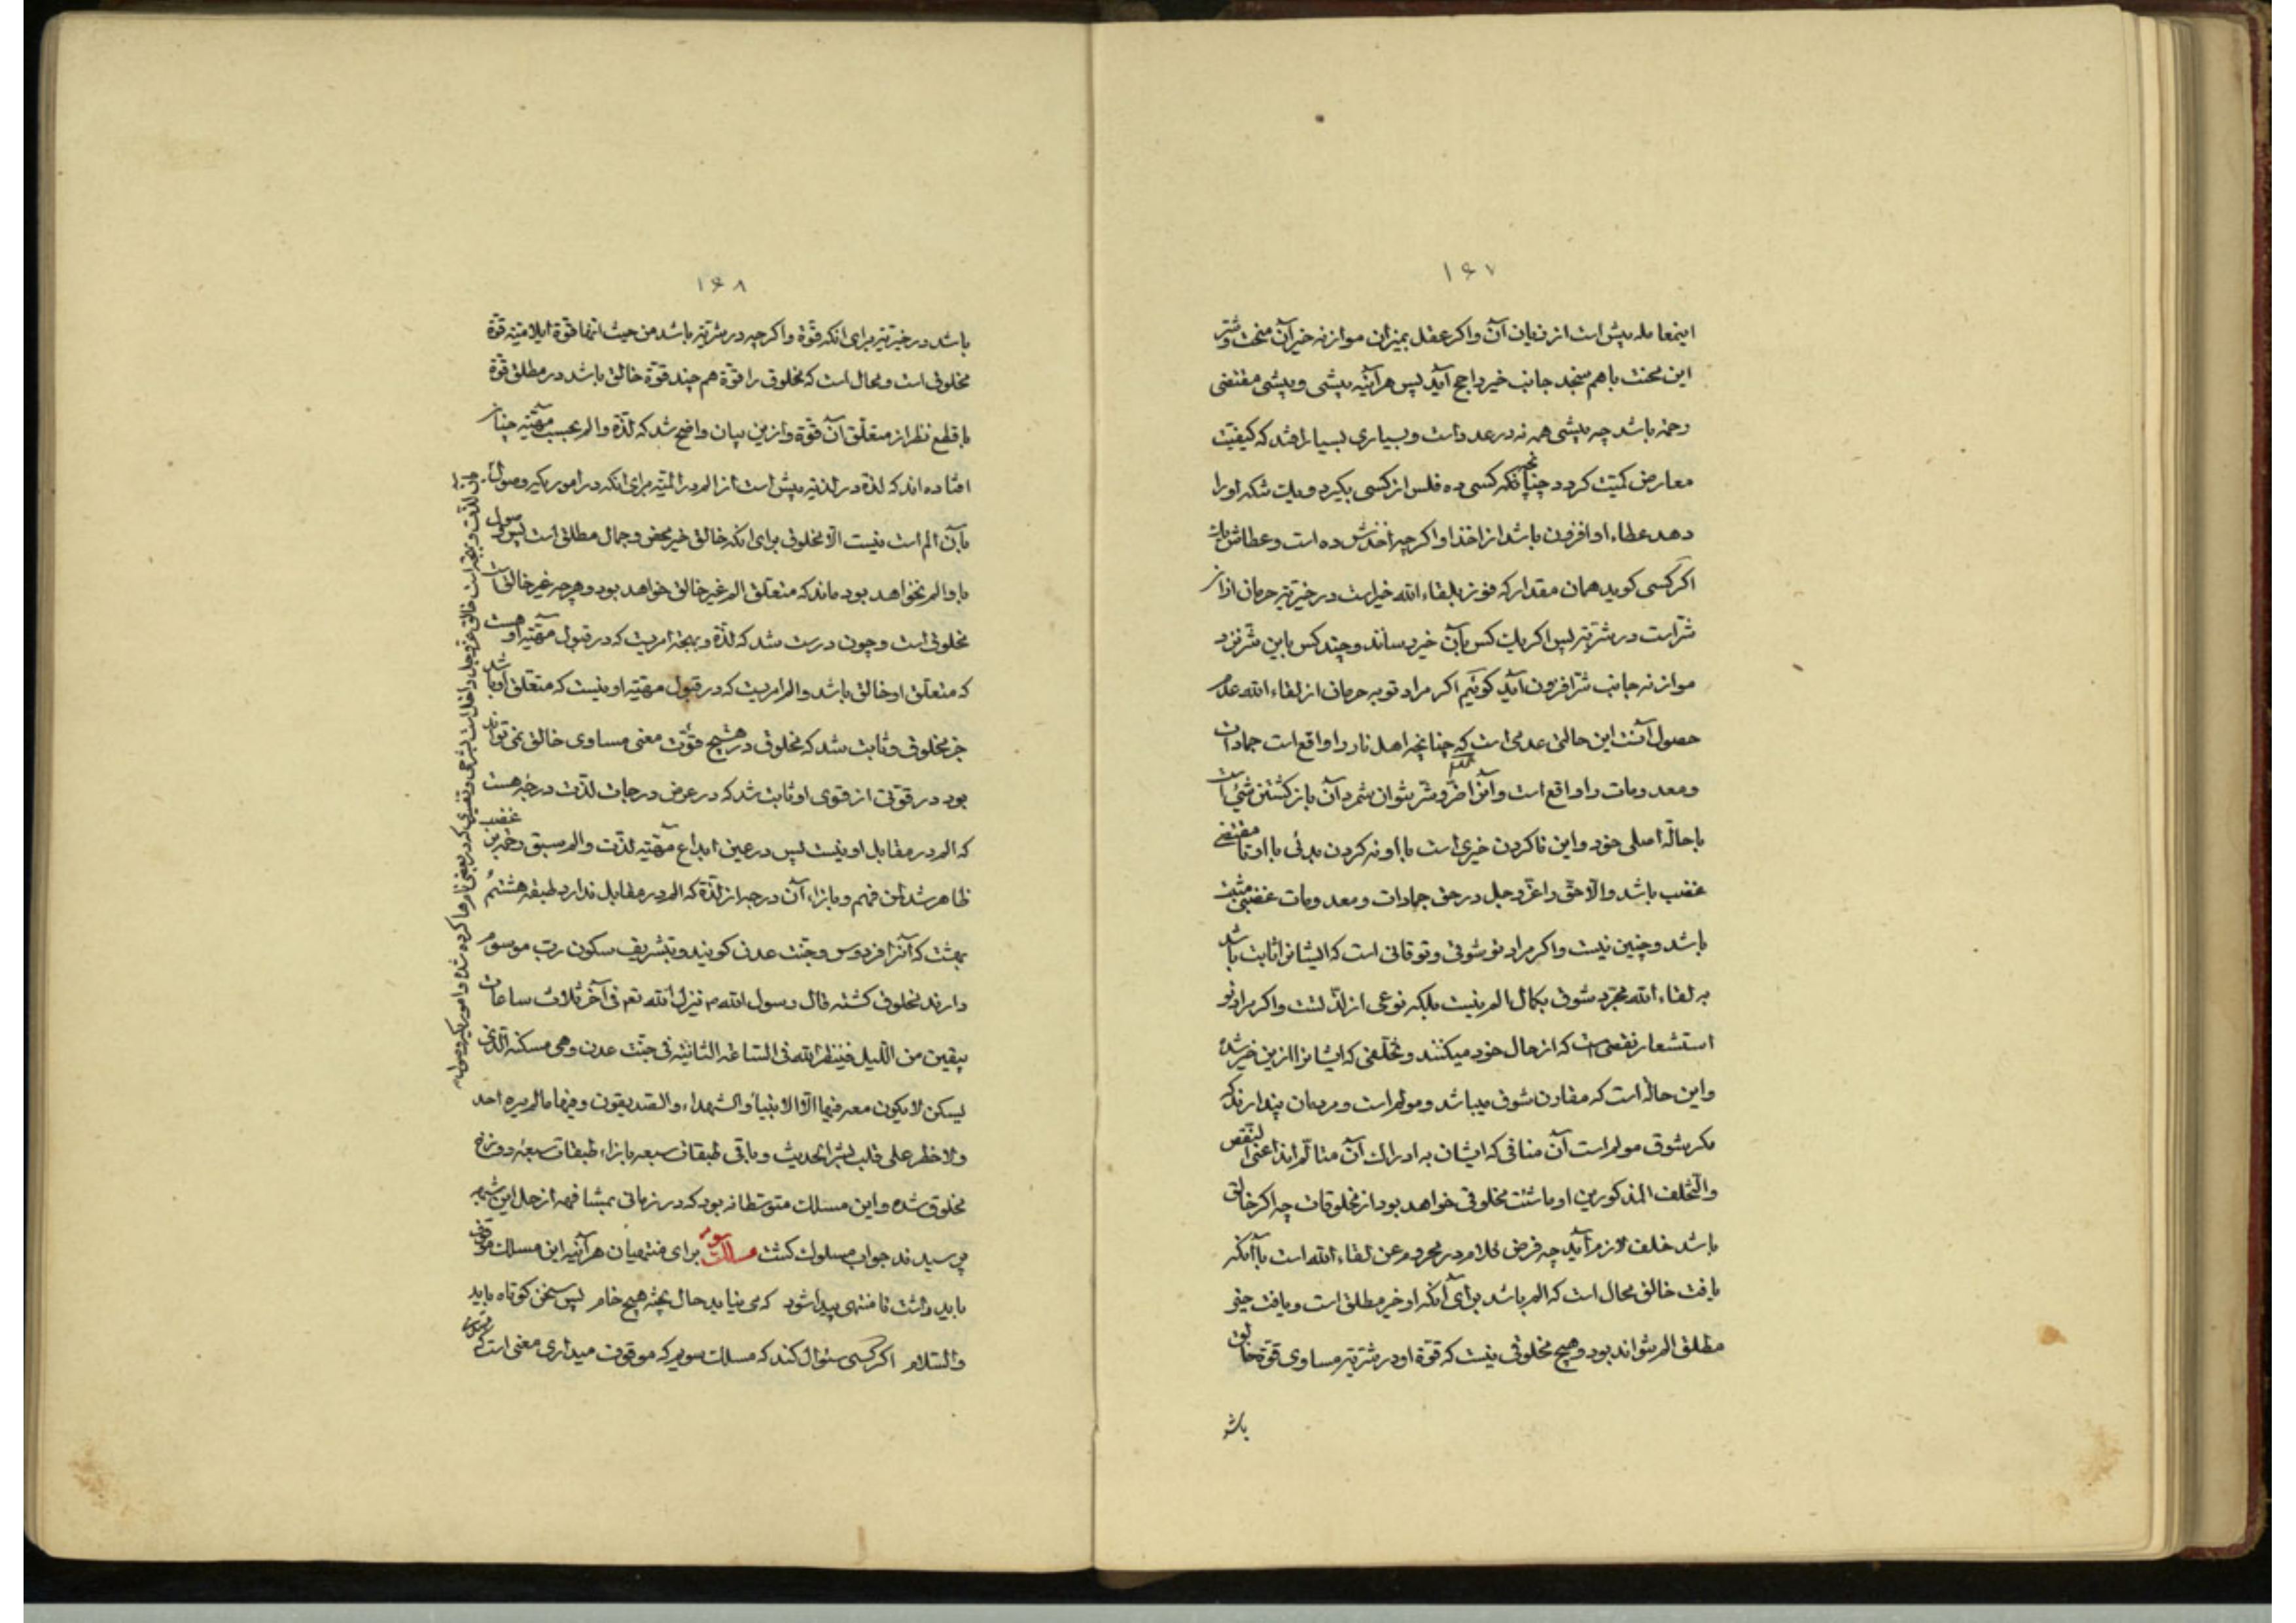 ۱۶۷
اینمعامله بیش است از زیان آن واکر عقل بمیزان موازنه خیر آن منحت وشر
این محنت باهم سنجد جانب خیر راجح آید پس هرآینه بیشی وبیشی مقتضی
رحمة باشد چه بیشی همه نه در عدد است وبسیاری بسیار افتد که کیفیت
معارض کمیت کردد چنانچه کسی ده فلس از کسی بکیرد ویک تنکه اورا
دهد عطاء او افزون باشد از اخذ او اکرچه اخذش ده است وعطاش یک
اکر کسی کوید همان مقدار که فوز بلقاء الله خیر است در خیریة حرمان از آن
شر است در شریة پس اکر یک کس بآن خیر رساند وچند کس باین شر نزد
موازنه جانب شر افزون آید کوئیم اکر مراد تو به حرمان از لقاء الله عدم
حصول آنست این حالتی عدمی است که چنانچه اهل نار را واقع است جمادات
ومعدومات را واقع است وآنرا ضر وشر نتوان شمرد آن باز کشتن شیٔ است
باحالة اصلی خود واین ناکردن خیری است با او نه کردن بدئی با او تا مقتضی
غضب باشد والّا حقّ را عزّ وجل در حق جمادات ومعدومات غضبی مثبت
باشد وچنین نیست واکر مراد تو شوقی وتوقانی است که ایشانرا ثابت باشد
به لقاء الله مجرّد شوق بکمال الم نیست بلکه نوعی از لذّتست واکر مراد تو
استشعار نقصی است که از حال خود میکنند وتخلّفی که ایشانرا ازین خیر شده
واین حالة است که مقارن شوق میباشد ومولم است ومردمان پندارند که
مکر شوق مولم است آن منافی که ایشان به ادراک آن متالّم اند اعنی النقص
والتّخلف المذکورین اوماشئت مخلوقی خواهد بود از مخلوقات چه اکر خالق
باشد خلف لازم آید چه فرض کلام در محروم عن لقاء الله است با آنکه
یافت خالق محال است که الم باشد برای آنکه او خیر مطلق است ویافت خیر
مطلق الم نتواند بود وهیچ مخلوقی نیست که قوّة او در شرّیة مساوی قوّة خالق
باشد
۱۶۸
باشد در خیریّة برای انکه قوّة واکرچه در شرّیّة باشد من حیث انّها قوّة ایلامیّة قوّة
مخلوقی است ومحال است که مخلوق را قوّة هم چند قوّة خالق باشد در مطلق قوّة
با قطع نظر از متعلّق آن قوّة وازین بیان واضح شد که لذّة والم بحسب مهیّة چنان
افتاده اند که لذّة در لذّیّة بیش است از الم در المیّة برای انکه در امور یکه وصول
بآن الم است نیست الّا مخلوق برای انکه خالق خیر محض وجمال مطلق است پس وصول
باو الم نخواهد بود ماند که متعلق الم غیر خالق خواهد بود وهرچه غیر خالق است
مخلوق است وچون درست شد که لذّة وبهجة امریست که در قبول مهیّة او هست
که متعلق او خالق باشد والم امریست که در قبول مهیّة او نیست که متعلق او باشد
جز مخلوق وثابت شد که مخلوق در هیچ قوّت معنی مساوی خالق نمی تواند
بود در قوتی از قوی او ثابت شد که در عرض درجات لذّت درجه هست
که الم در مقابل او نیست پس در عین ابداع مهیّة لذّت والم سبق رحمة بر غضب
ظاهر شد فافهم وبازاء آن درجه از لذّة که الم در مقابل ندارد طبقه هشتم
بهشت که آنرا فردوس وجنّت عدن کویند وبتشریف سکون رب موسوم
دارند مخلوق کشته قال رسول الله ص ینزل الله تع فی آخر ثلاث ساعات
یبقین من اللّیل فینظر الله فی الساعة الثانیة فی جنّت عدن وهی مسکنه الّذی
یسکن لایکون معه فیها الّا الانبیاء والشهداء والصدیقون وفیها مالم یره احد
ولاخطر علی قلب بشر الحدیث وباقی طبقات سبعه بازاء طبقات سبعه دوزخ
مخلوق شده واین مسلک متوسطانه بود که در زمانی بمشافهه از حل این شبهه
پرسیدند جواب مسلوک کشت مسلک سوم برای منتهیان هرآینه این مسلک موقوف
باید داشت تا منتهی پیدا شود که می نیابد حال پخته هیچ خام پس سخن کوتاه باید
والسّلام اکر کسی سئوال کند که مسلک سوم که موقوف میداری معنی است که